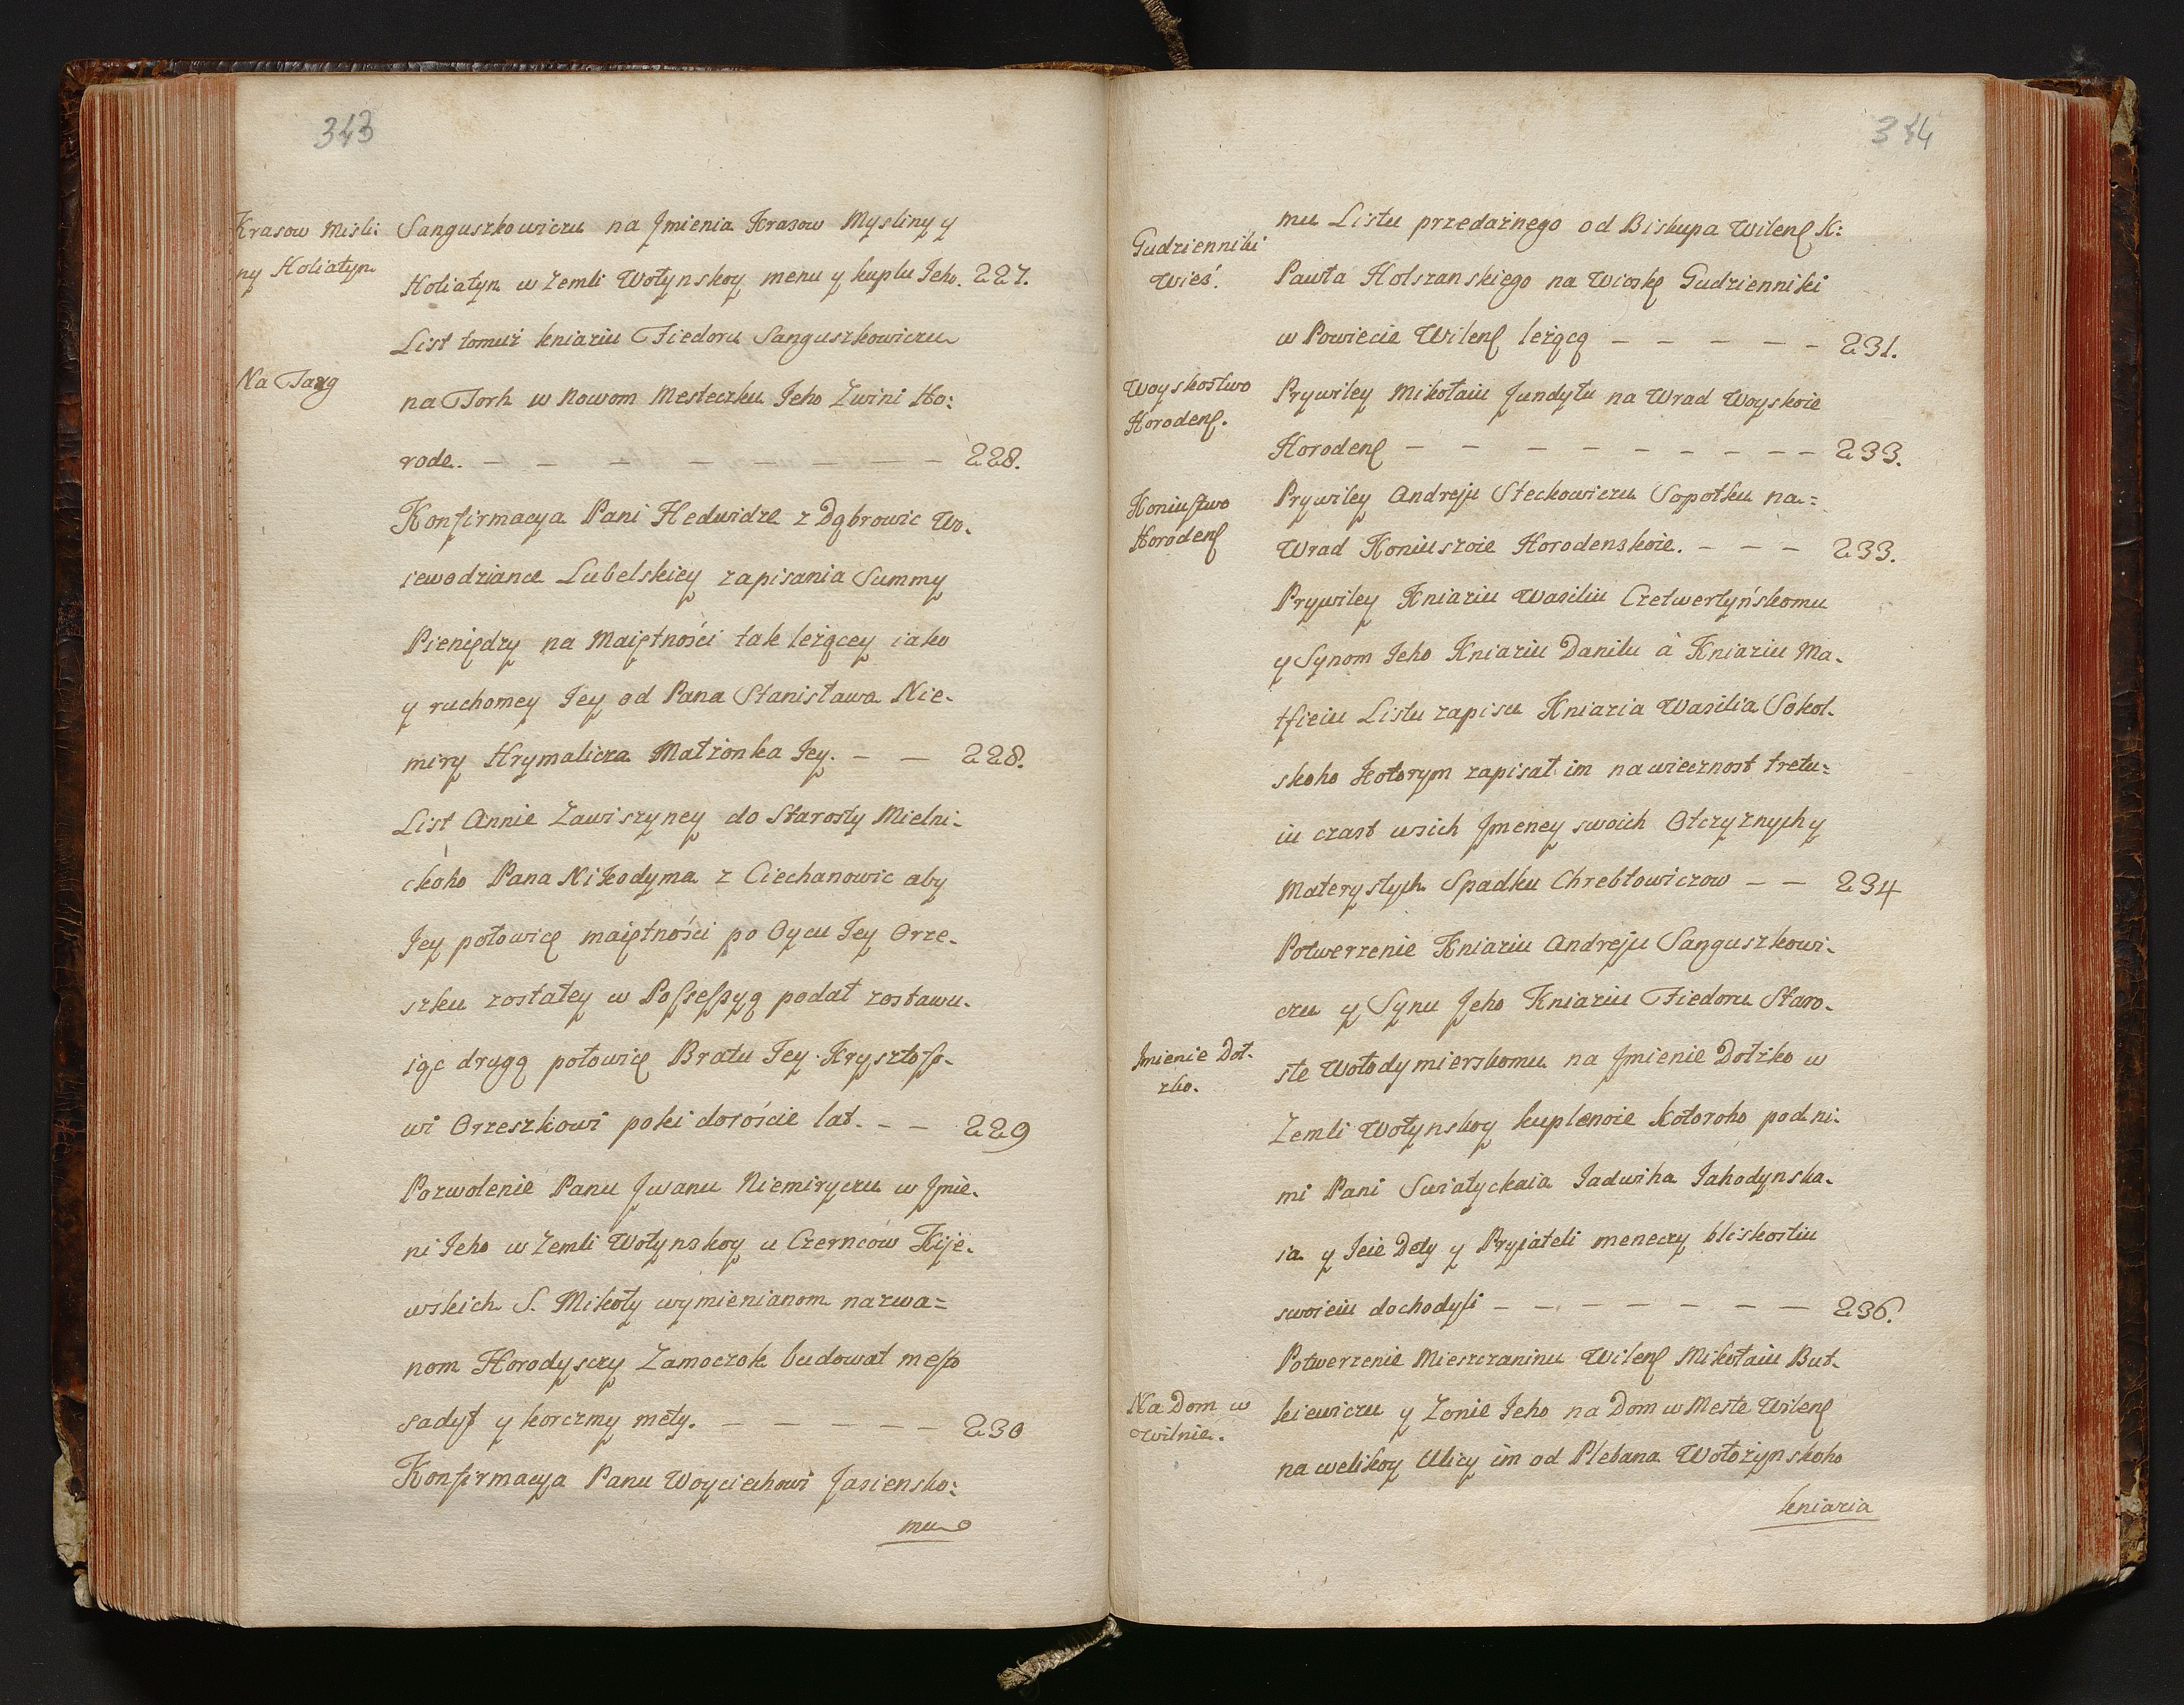 343
Krasow Misli:
ny Holiatyn
Sanguszkowiczu na Jmienia Krasow Mysliny y
Holiatyn w Zemli Wołynskoy menu y kuplu Jeho. 227.
List tomuż kniaziu Fiedoru Sanguszkowiczu
Na Targ
na Torh w Nowom Mesteczku Jeho Zwini Ho:
rode. — — — — — — — 228.
Konfirmacya Pani Hedwidze z Dąbrowic Wo-
iewodziance Lubelskiey zapisania Summy
Pieniędzy na Maiętności tak leżącey iako
y ruchomey Jey od Pana Stanisława Nie-
miry Hrymalicza Małżonka Jey. — — 228.
List Annie Zawiszyney do Starosty Mielni-
ckoho Pana Nikodyma z Ciechanowic aby
Jey połowicę maiętności po Oycu Jey Orze-
szku zostałey w Possessyą podał zostawu-
iąc drugą połowicę Bratu Jey Krysztofo-
wi Orzeszkowi poki doroście lat. — — 229
Pozwolenie Panu Jwanu Niemiryczu w Jmie-
ni Jeho w Zemli Wołynskoy u Czerncow Kije-
wskich S. Mikoły wymienianom nazwa=
nom Horodysczy Zamoczok budowat mesto
sadyt y korczmy mety. — — — — — 230
Konfirmacya Panu Woyciechowi Jasiensko:
mu
344
mu Listu przedażnego od Biskupa Wilenſ K:
Gudzienniki
Wieś.
Pawła Holszanskiego na Wioskę Gudzienniki
w Powiecie Wilenſ leżącą — — — — — 231.
Woyskostwo
Horodenſ.
Prywiley Mikołaiu Jundyłu na Wrad Woyskoie
Horodenſ — — — — — — — — — 233.
Koniustwo
Horodenſ
Prywiley Andreju Steckowiczu Sopoťku na=
Wrad Koniuszoie Horodenskoie. — — — 233.
Prywiley Kniaziu Wasiliu Czetwertyńskomu
y Synom Jeho Kniaziu Danilu à Kniaziu Ma-
tfieiu Listu zapisu Kniazia Wasilia Sokol-
skoho kotorym zapisał im na wiecznost tretu=
iu czast wsich Jmeney swoich Otczyznych y
Materystych Spadku Chrebtowiczow — — 234
Potwerzenie Kniaziu Andreju Sanguszkowi-
czu y Synu Jeho Kniaziu Fiedoru Staro-
Jmienie Doł-
zko.
ste Wołodymierskomu na Jmienie Dołżko w
Zemli Wołynskoy kuplenoie kotoroho pod ni-
mi Pani Swiatyckaia Jadwiha Jahodynska-
ia y Jeie Dety y Pryiateli meneczy bliskostiu
swoieiu dochodyli — — — — — — — 236.
Potwerzenie Mieszczaninu Wilenſ Mikołaiu But-
Na Dom w
Wilnie.
kiewiczu y Zonie Jeho na Dom w Meste Wilenſ
na welikoy Ulicy im od Plebana Wołożynskoho
kniazia